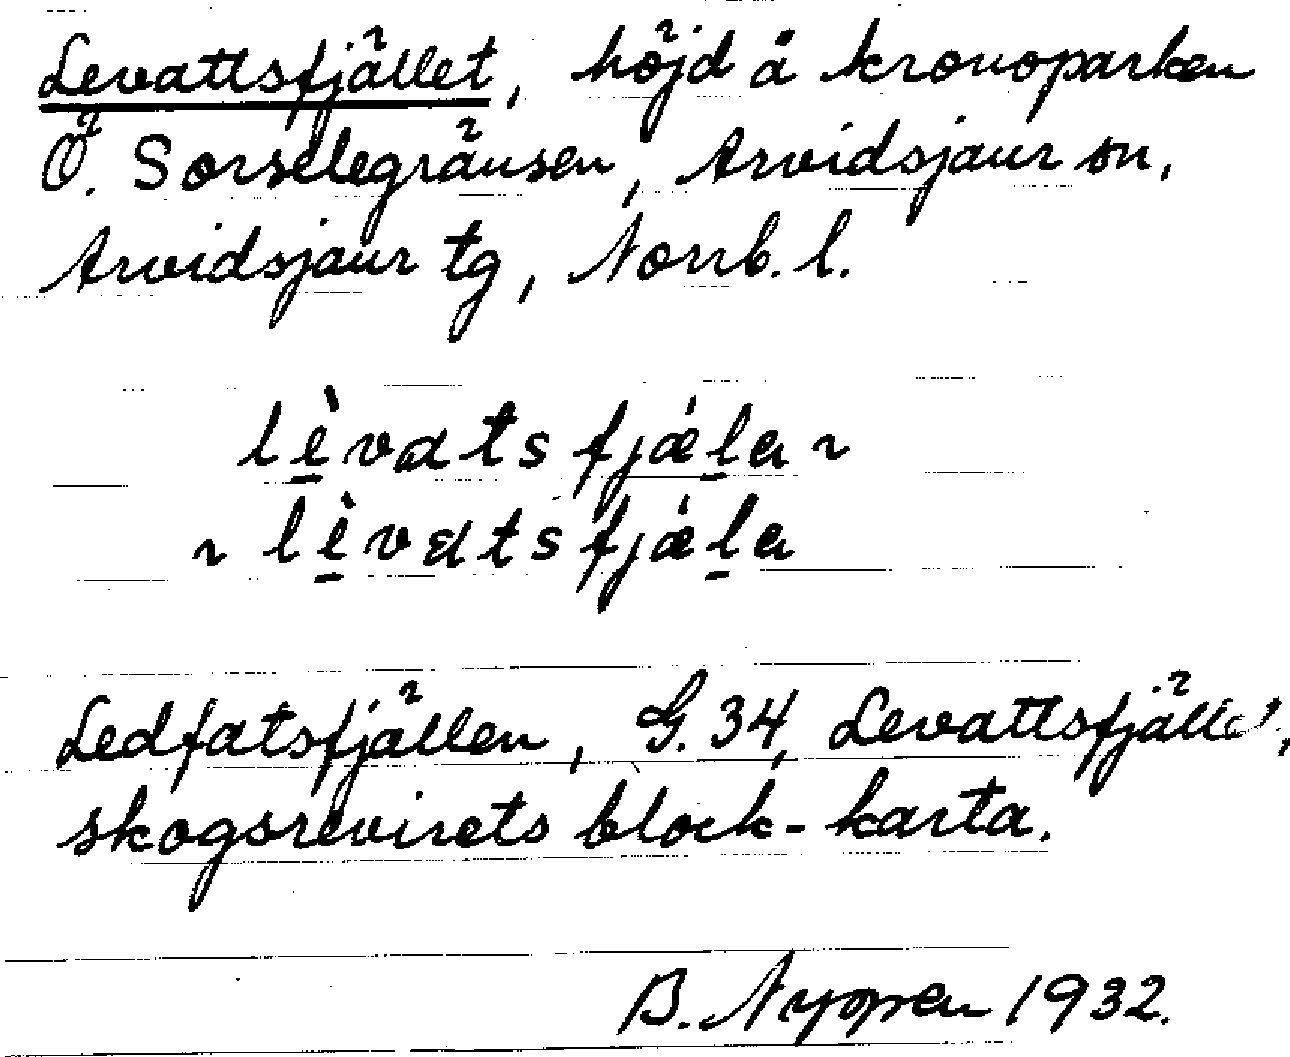 Levattsfjället, höjd å kronoparken
Ö. Sorselegränsen, Arvidsjaur sn,
Arvidsjaur tg, Norrb. l.
lèvatsfjǽla ~
~ lèvatsfjǽla
Ledfatsfjällen, G. 34, Levattsfjället,
skogsrevirets block-karta.
B. Nyppen 1932.